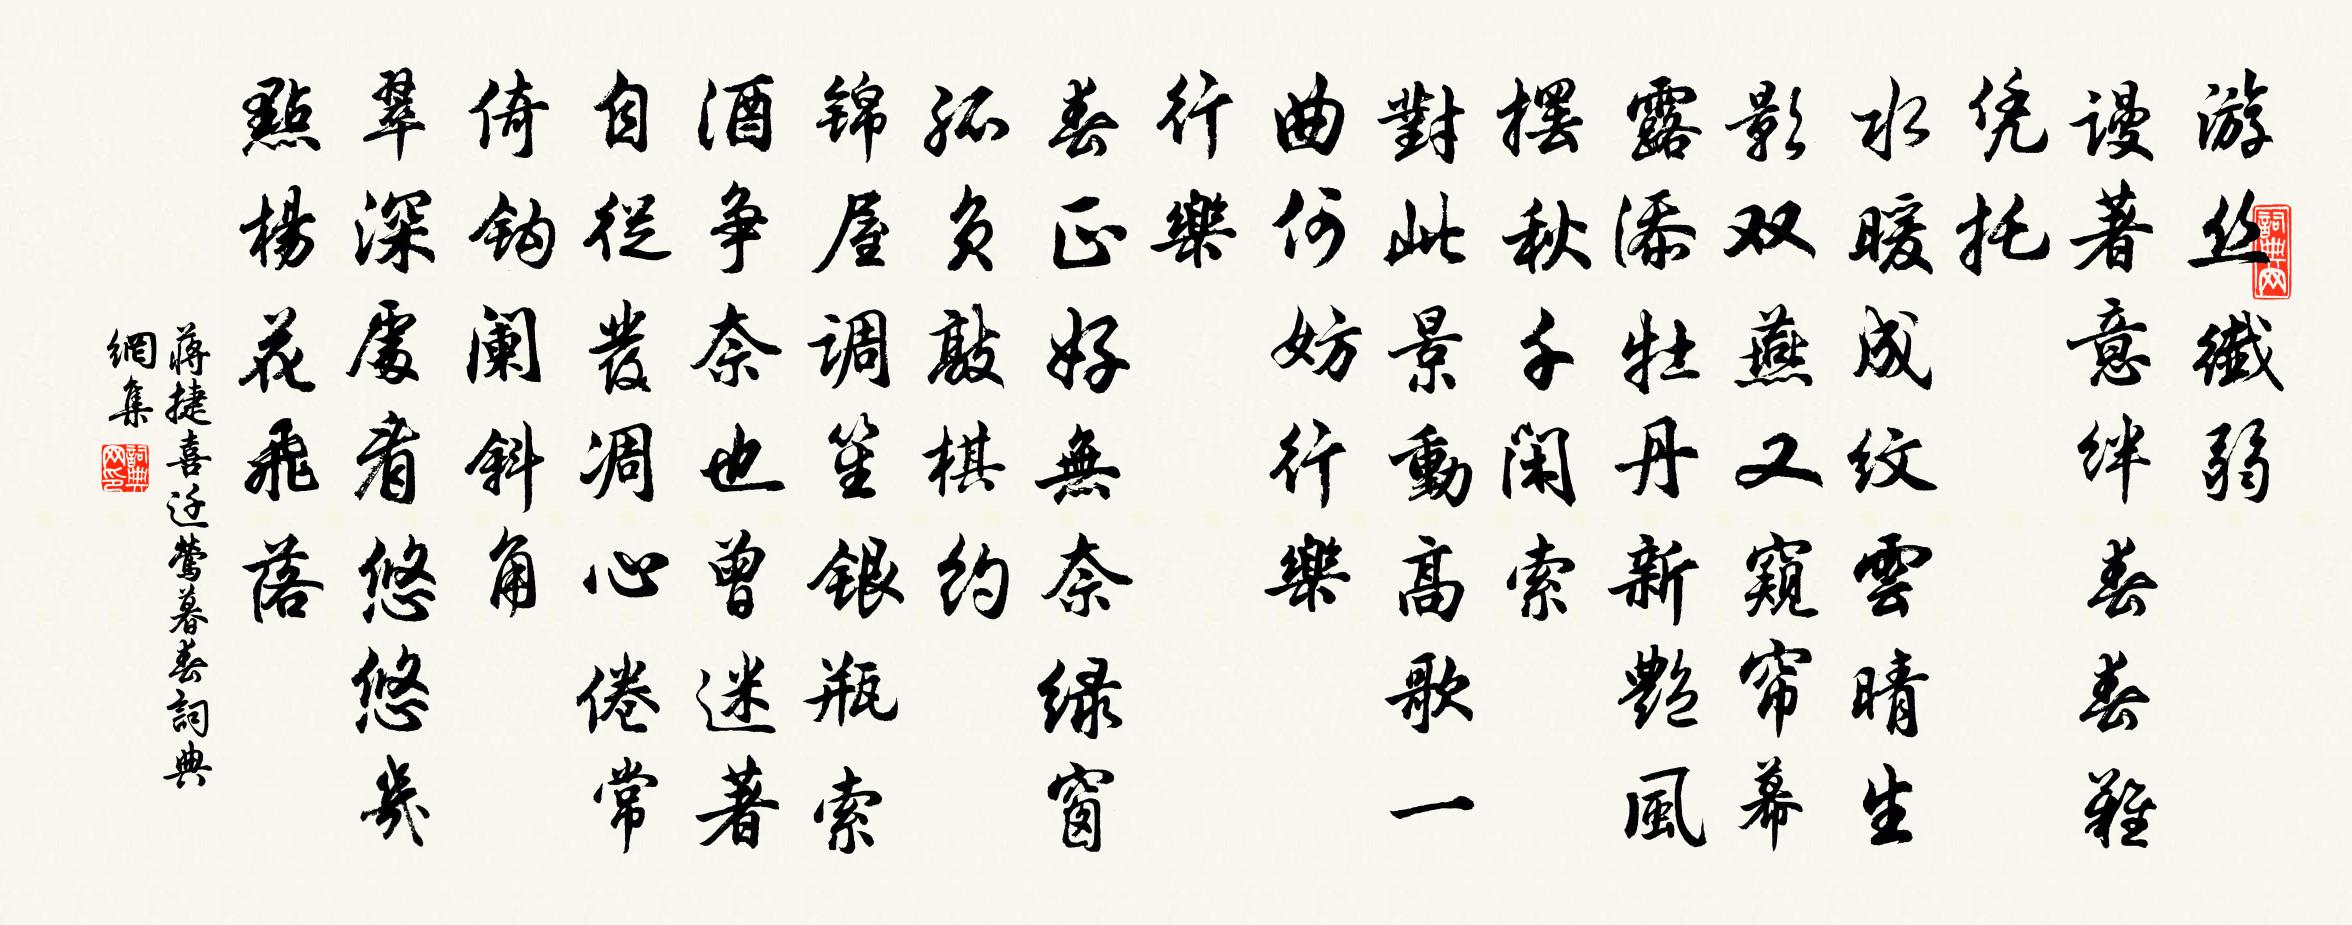 游丝纖弱
谩著意絆春春難
凭托
水暖成纹雲晴生
影双燕又窺帘幕
露添牡丹新艷風
擺秋千闲索
對此景動高歌一
曲何妨行樂
行樂
春正好無奈绿窗
孤负敲棋約
锦屋调笙银瓶索
酒争奈也曾迷著
自從發凋心倦常
倚钩阑斜角
翠深處看悠悠幾
點楊花飛落
蒋捷喜迁莺暮春詞典
網集
詞典网
詞典网印